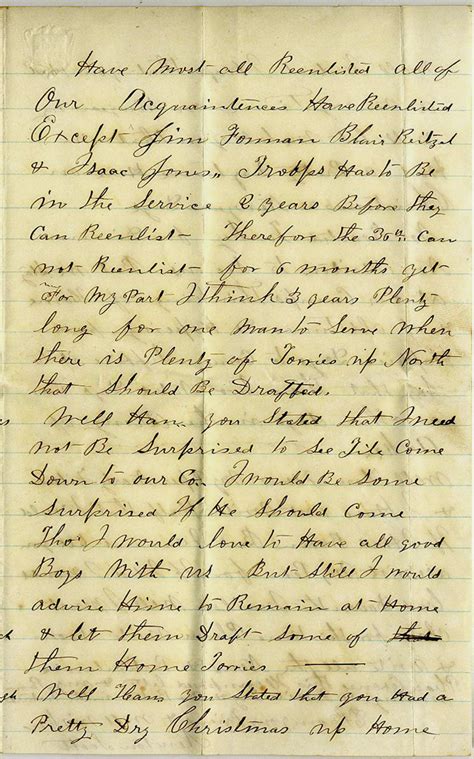 Have Most all Reenlisted all of
Our Acquaintences Have Reenlisted
Except Jim Forman Blair Reitzel
& Isaac Jones,, Troops Has to Be
in the Service 2 years Before they
Can Reenlist - Therefore the 30th Can
not Reenlist - for 6 months yet
For My Part I think 3 years Plenty
long for one Man to Serve When
there is Plenty of Torries up North
that Should Be Drafted.
Well Han you Stated that I need
not Be Surprised to See Tile Come
Down to our Co. I would Be Some
Surprised If He Should Come
Tho' I would love to Have all good
Boys With us But Still I would
advise Hime to Remain at Home
& let them Draft Some of that
them Home Torries ——
Well Hans you Stated that you Had a
Pretty Dry Christmas up Home